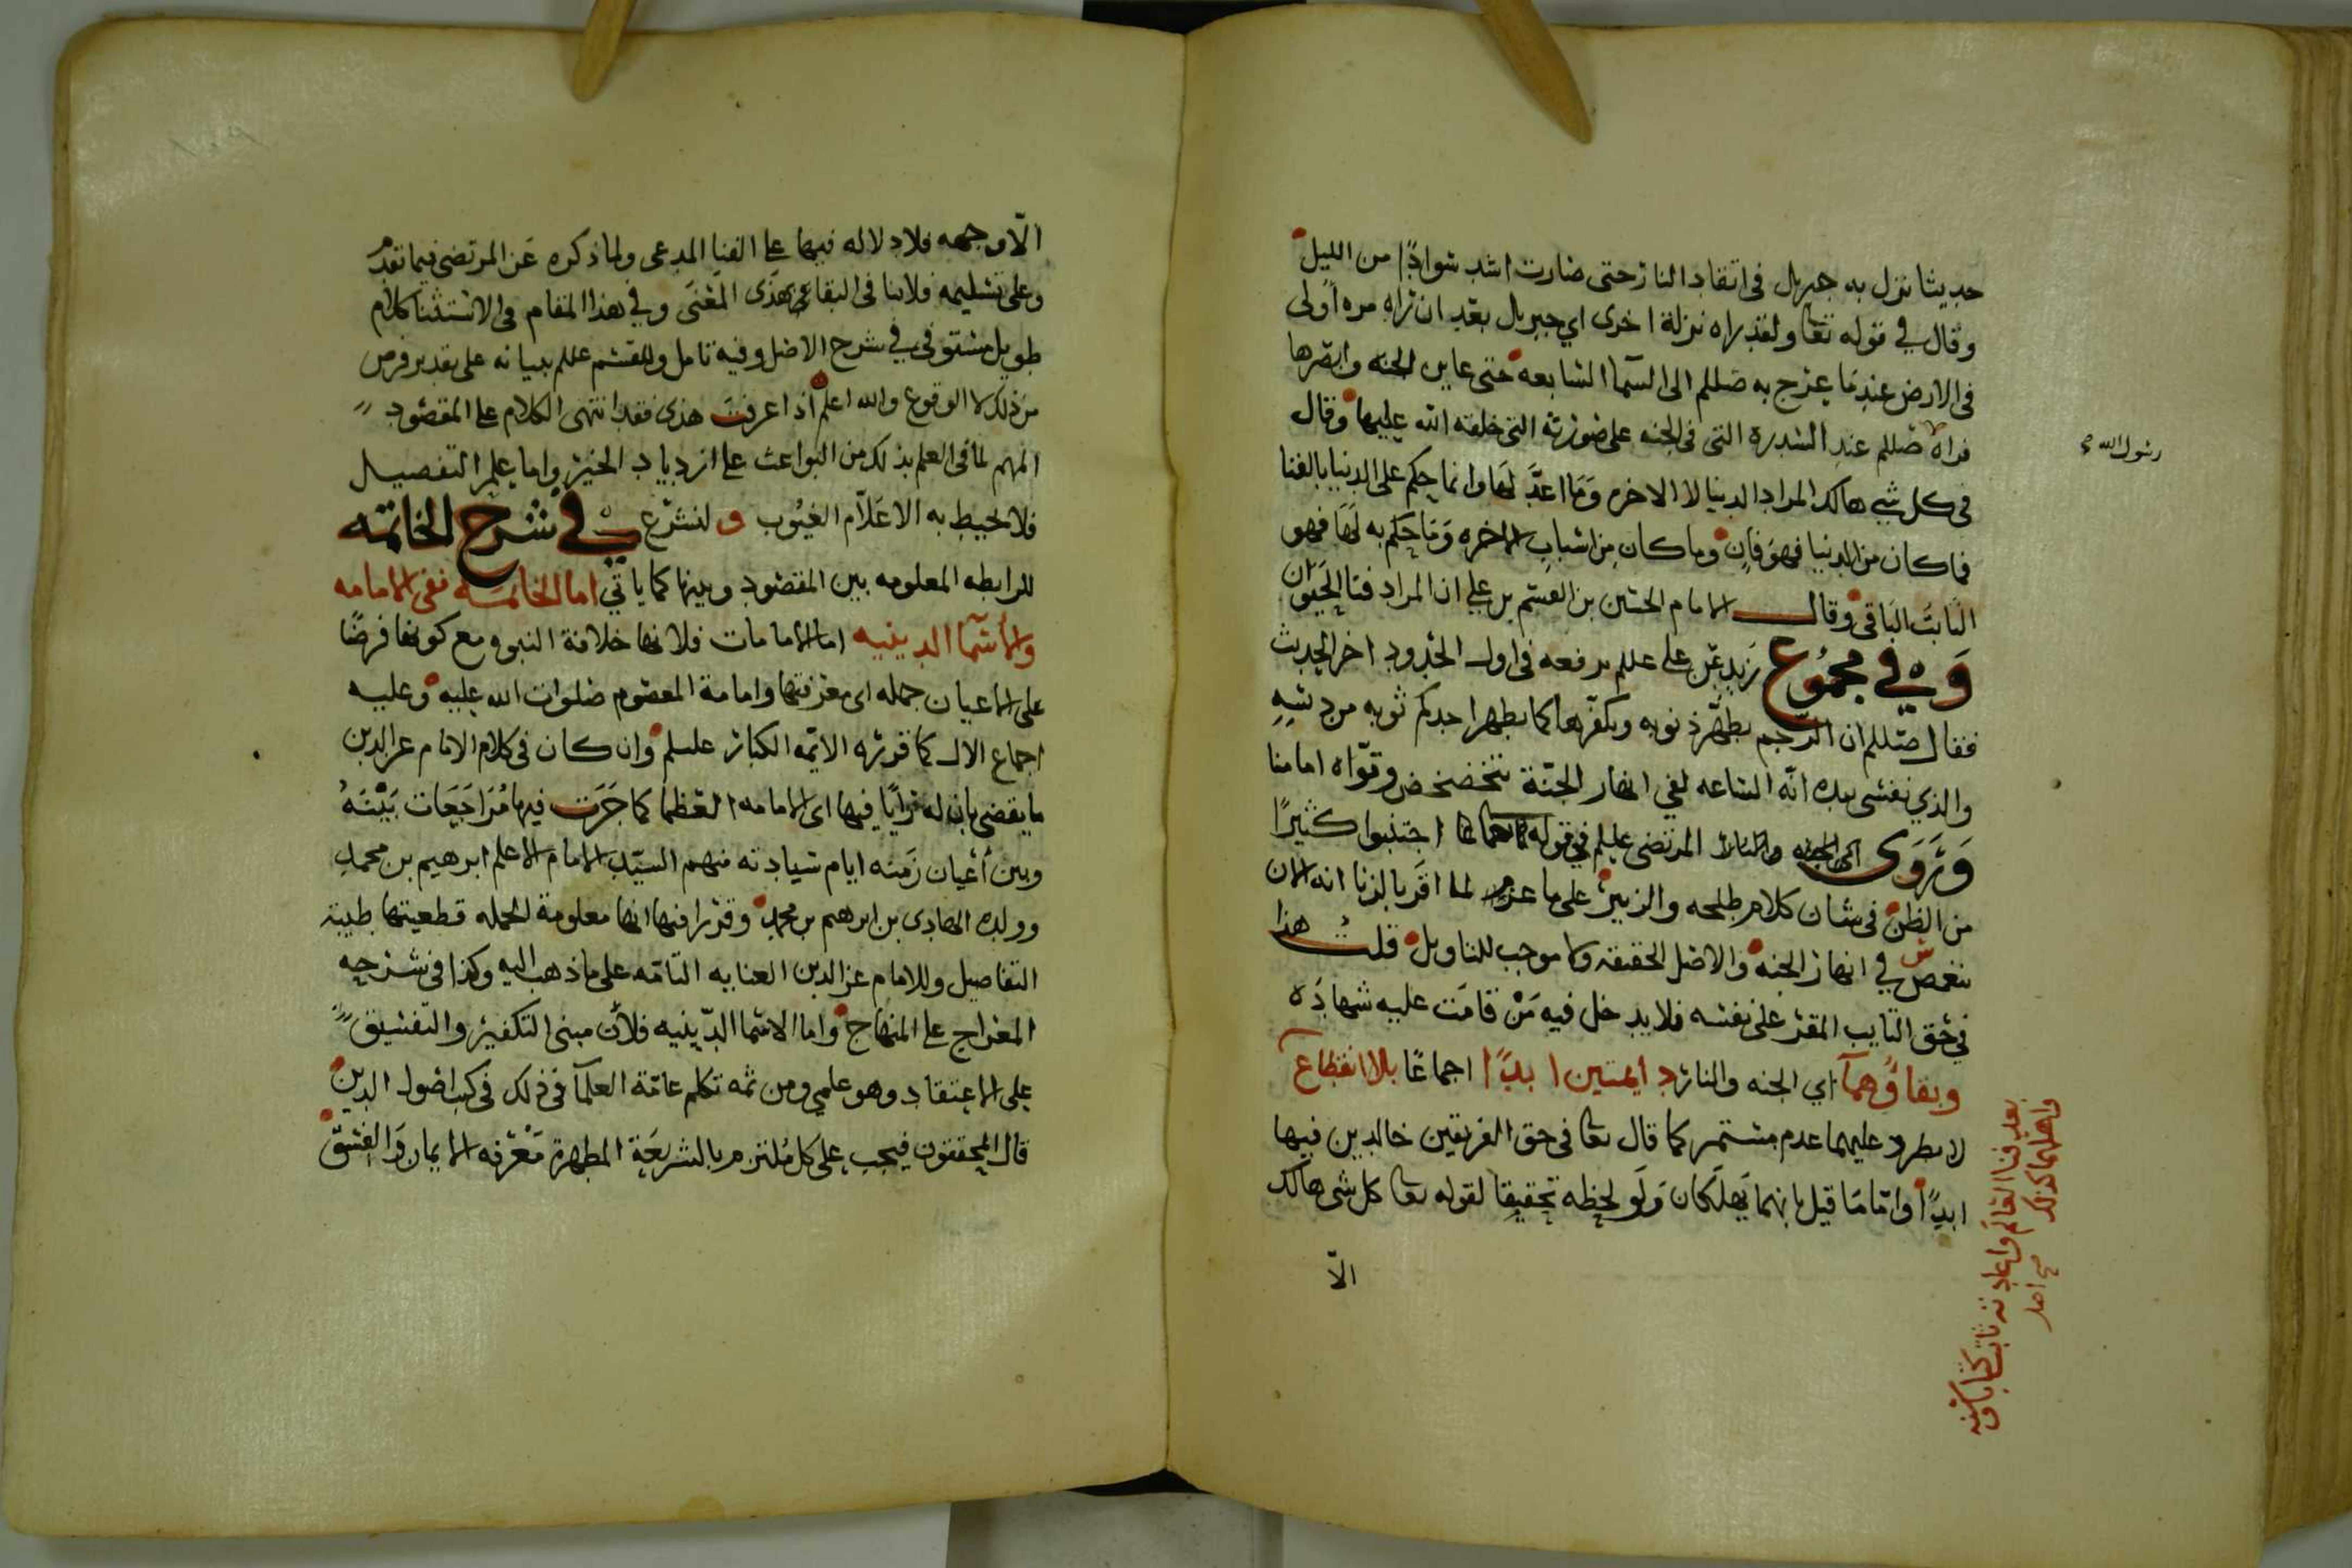 حديثا نزل به جبريل في اتقاد النار حتى صارت اشد سوادًا من الليل
وقال في قوله تعا ولقد راه نزلة اخرى اي جبريل بعد ان راه مره اولى
في الارض عند ما عرج به صللم الى السما السابعه حتى عاين الجنه وابصرها
فراه صللم عند السدرة التي في الجنه على صورته التي خلقه الله عليها وقال
رسول الله
في كل شي هالك المراد الدنيا لا الاخره وما اعدّ لها وانما حكم على الدنيا بالفنا
فما كان من الدنيا فهو فان وما كان من اسباب الاخره وما حكم به لها فهو
الثابت الباقي وقال الامام الحسين بن القسم بن علي ان المراد فنا الحيوان
وفي مجموع زيد بن علي عللم يرفعه في اول الحدود اخر الحديث
فقال صللم ان الرجم يطهّر ذنوبه ويكفّرها كما يطهر احدكم ثوبه من دنسه
والذي نفسي بيده انّه الساعه لفي انهار الجنّة يتخضخض وقوّاه امامنا
وَرَوَى المرتضى عليلم في قوله تعا اجتنبوا كثيرًا
من الظن في شان كلام طلحه والزبير على ماعز لما اقر بالزنا انه الان
ينغمس في انهار الجنه والاصل الحقيقه ولا موجب للتاويل قلت هذا
في حق التايب المقر على نفسه فلا يدخل فيه مَنْ قامت عليه شهادَه
وبقاؤهما اي الجنه والنار دايمتين ابدًا اجماعًا بلا انقطاع
لا يطرو عليهما عدم مستمر كما قال تعا في حق الفريقين خالدين فيها
ابدًا واما ما قيل بانهما يهلكان ولو لحظه تحقيقا لقوله تعا كل شي هالك
بعد فنا العالم واعادته ثابت كتابا وسنه
واهلهما كذلك صح اصل
الّا
الّا وجهه فلا دلاله فيها على الفنا المدعى ولما ذكره عن المرتضى فيما تقدم
وعلى تسليمه فلا ينافي البقا بهذى المعنى وفي هذا المقام في الاستثنا كلام
طويل مستوفى في شرح الاصل وفيه تامل وللقسم عللم بيانه على تقدير فرض
من ذلك لا الوقوع والله اعلم اذا عرفت هذى فقد انتهى الكلام على المقصود
المهم لما في العلم بذلك من البواعث على ازدياد الخير واما علم التفصيل
فلا يحيط به الا علّام الغيوب ولنشرع في شرح الخاتمه
للرابطه المعلومه بين المقصود وبينها كما ياتي اما الخاتمه ففي الامامه
والاسما الدينيه اما الامامات فلانها خلافة النبوه مع كونها فرضًا
على الاعيان جمله اي معرفتها وامامة المعصوم صلوات الله عليه وعليه
اجماع الال كما قرره الايمه الكبار عليلم وان كان في كلام الامام عز الدين
ما يقضي بان له رايًا فيها اي الامامه العظما كما جَرَت فيها مُرَاجَعَات بَيْنَهُ
وبين أعيان زمنه ايام سيادته منهم السيّد الامام الاعلم ابرهيم بن محمد
وولده الهادي بن ابرهيم بن محمد وقررا فيها انها معلومة الجمله قطعيتها ظنية
التفاصيل وللامام عز الدين العنايه التامّه على ما ذهب اليه وكذا في شرحه
المعراج على المنهاج واما الاسما الدّينيه فلأن مبنى التكفير والتفسيق
على الاعتقاد وهو علمي ومن ثمه تكلم عامّة العلمآ في ذلك في كتب اصول الدين
قال المحققون فيجب على كل مُلتزم بالشريعَة المطهرة مَعْرفة الايمان وَالفِسْقِ